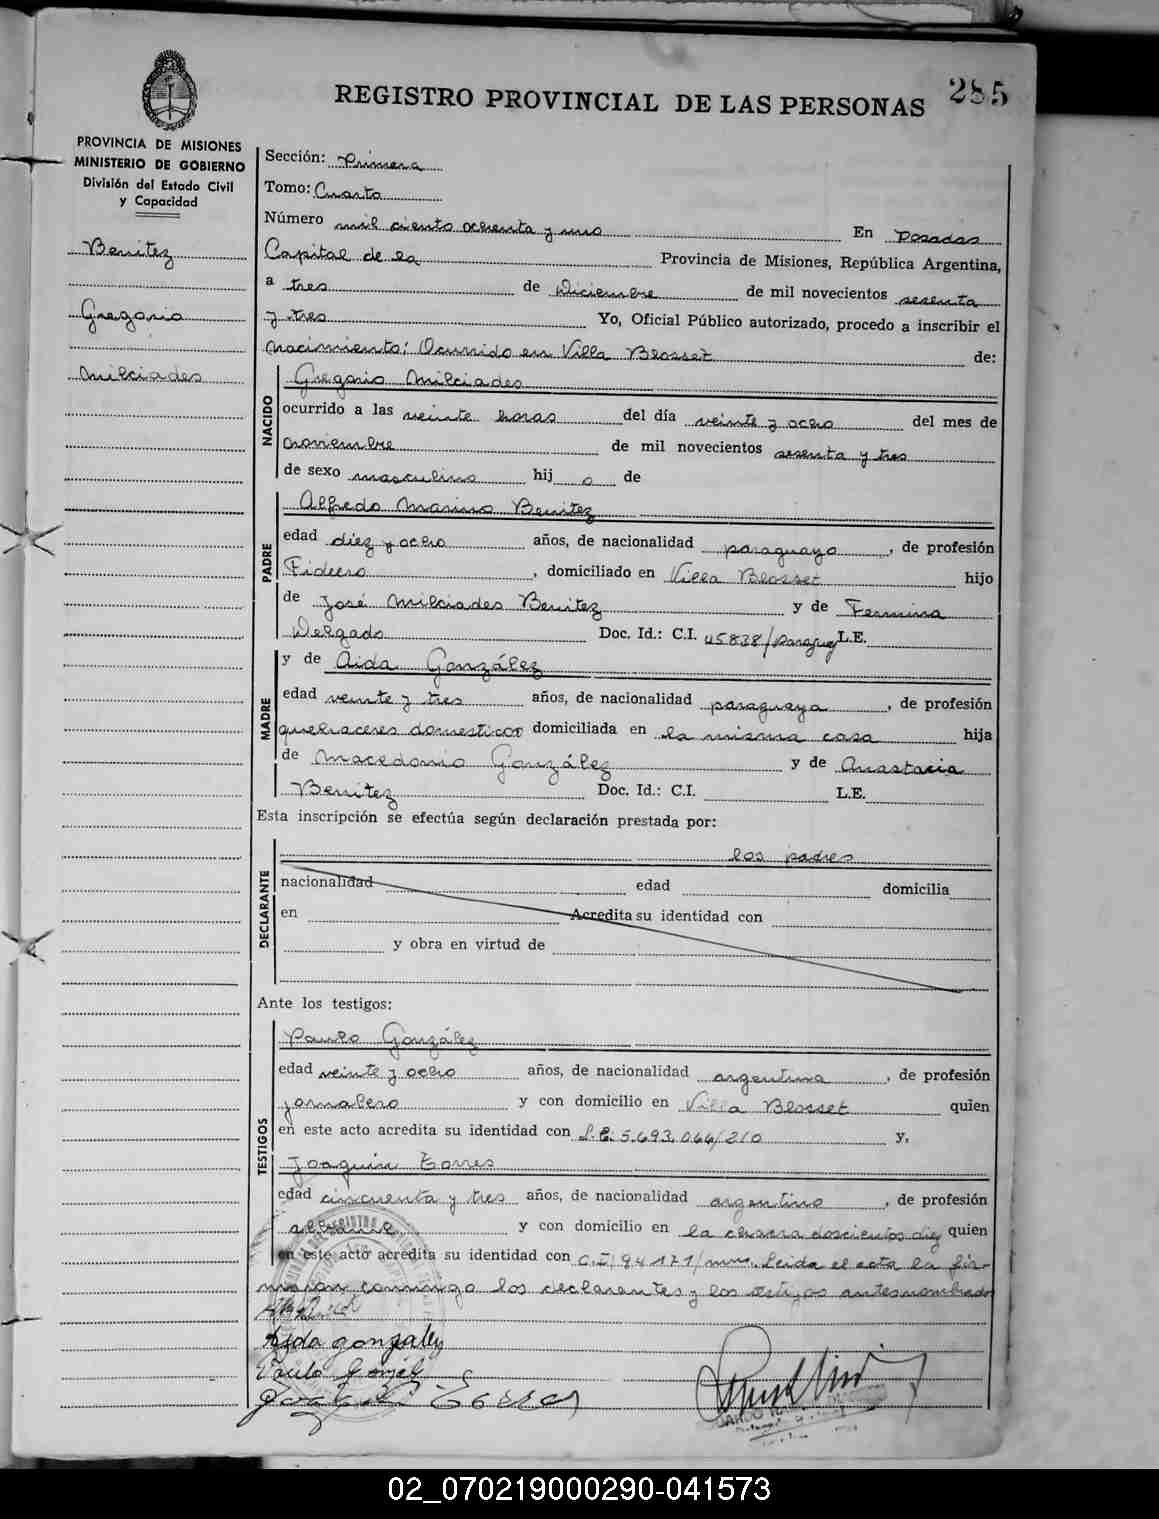 285
REGISTRO PROVINCIAL DE LAS PERSONAS
PROVINCIA DE MISIONES
MINISTERIO DE GOBIERNO
División del Estado Civil
y Capacidad
Benitez
Gregorio
Milciades
Sección: Primera
Tomo: Cuarto
Número mil ciento ochenta y uno En Posadas
Capital de la Provincia de Misiones, República Argentina,
a tres de Diciembre de mil novecientos sesenta
y tres Yo, Oficial Público autorizado, procedo a inscribir el
nacimiento: Ocurrido en Villa Blosset de:
NACIDO
Gregorio Milciades
ocurrido a las veinte horas del día veinte y ocho del mes de
noviembre de mil novecientos sesenta y tres
de sexo masculino hij o de
PADRE
Alfredo Marino Benitez
edad diez y ocho años, de nacionalidad paraguayo, de profesión
Fideero, domiciliado en Villa Blosset hijo
de José Milciades Benitez y de Fermina
Delgado Doc. Id.: C.I. 45838/Paraguay L.E.
MADRE
y de Aida González
edad veinte y tres años, de nacionalidad paraguaya, de profesión
quehaceres domesticos domiciliada en la misma casa hija
de Macedonio González y de Anastacia
Benitez Doc. Id.: C.I. L.E.
Esta inscripción se efectúa según declaración prestada por:
DECLARANTE
los padres
nacionalidad edad domicilia
en Acredita su identidad con
y obra en virtud de
Ante los testigos:
TESTIGOS
Paulo González
edad veinte y ocho años, de nacionalidad argentina, de profesión
jornalero y con domicilio en Villa Blosset quien
en este acto acredita su identidad con L.E. 5.693.064/210 y,
Joaquin Torres
edad cincuenta y tres años, de nacionalidad argentino, de profesión
y con domicilio en la chacra doscientos diez quien
en este acto acredita su identidad con C.I/94171/mnes. Leida el acta la fir-
maron conmigo los declarantes y los testigos antesnombrados
Aida gonzalez
02_070219000290-041573